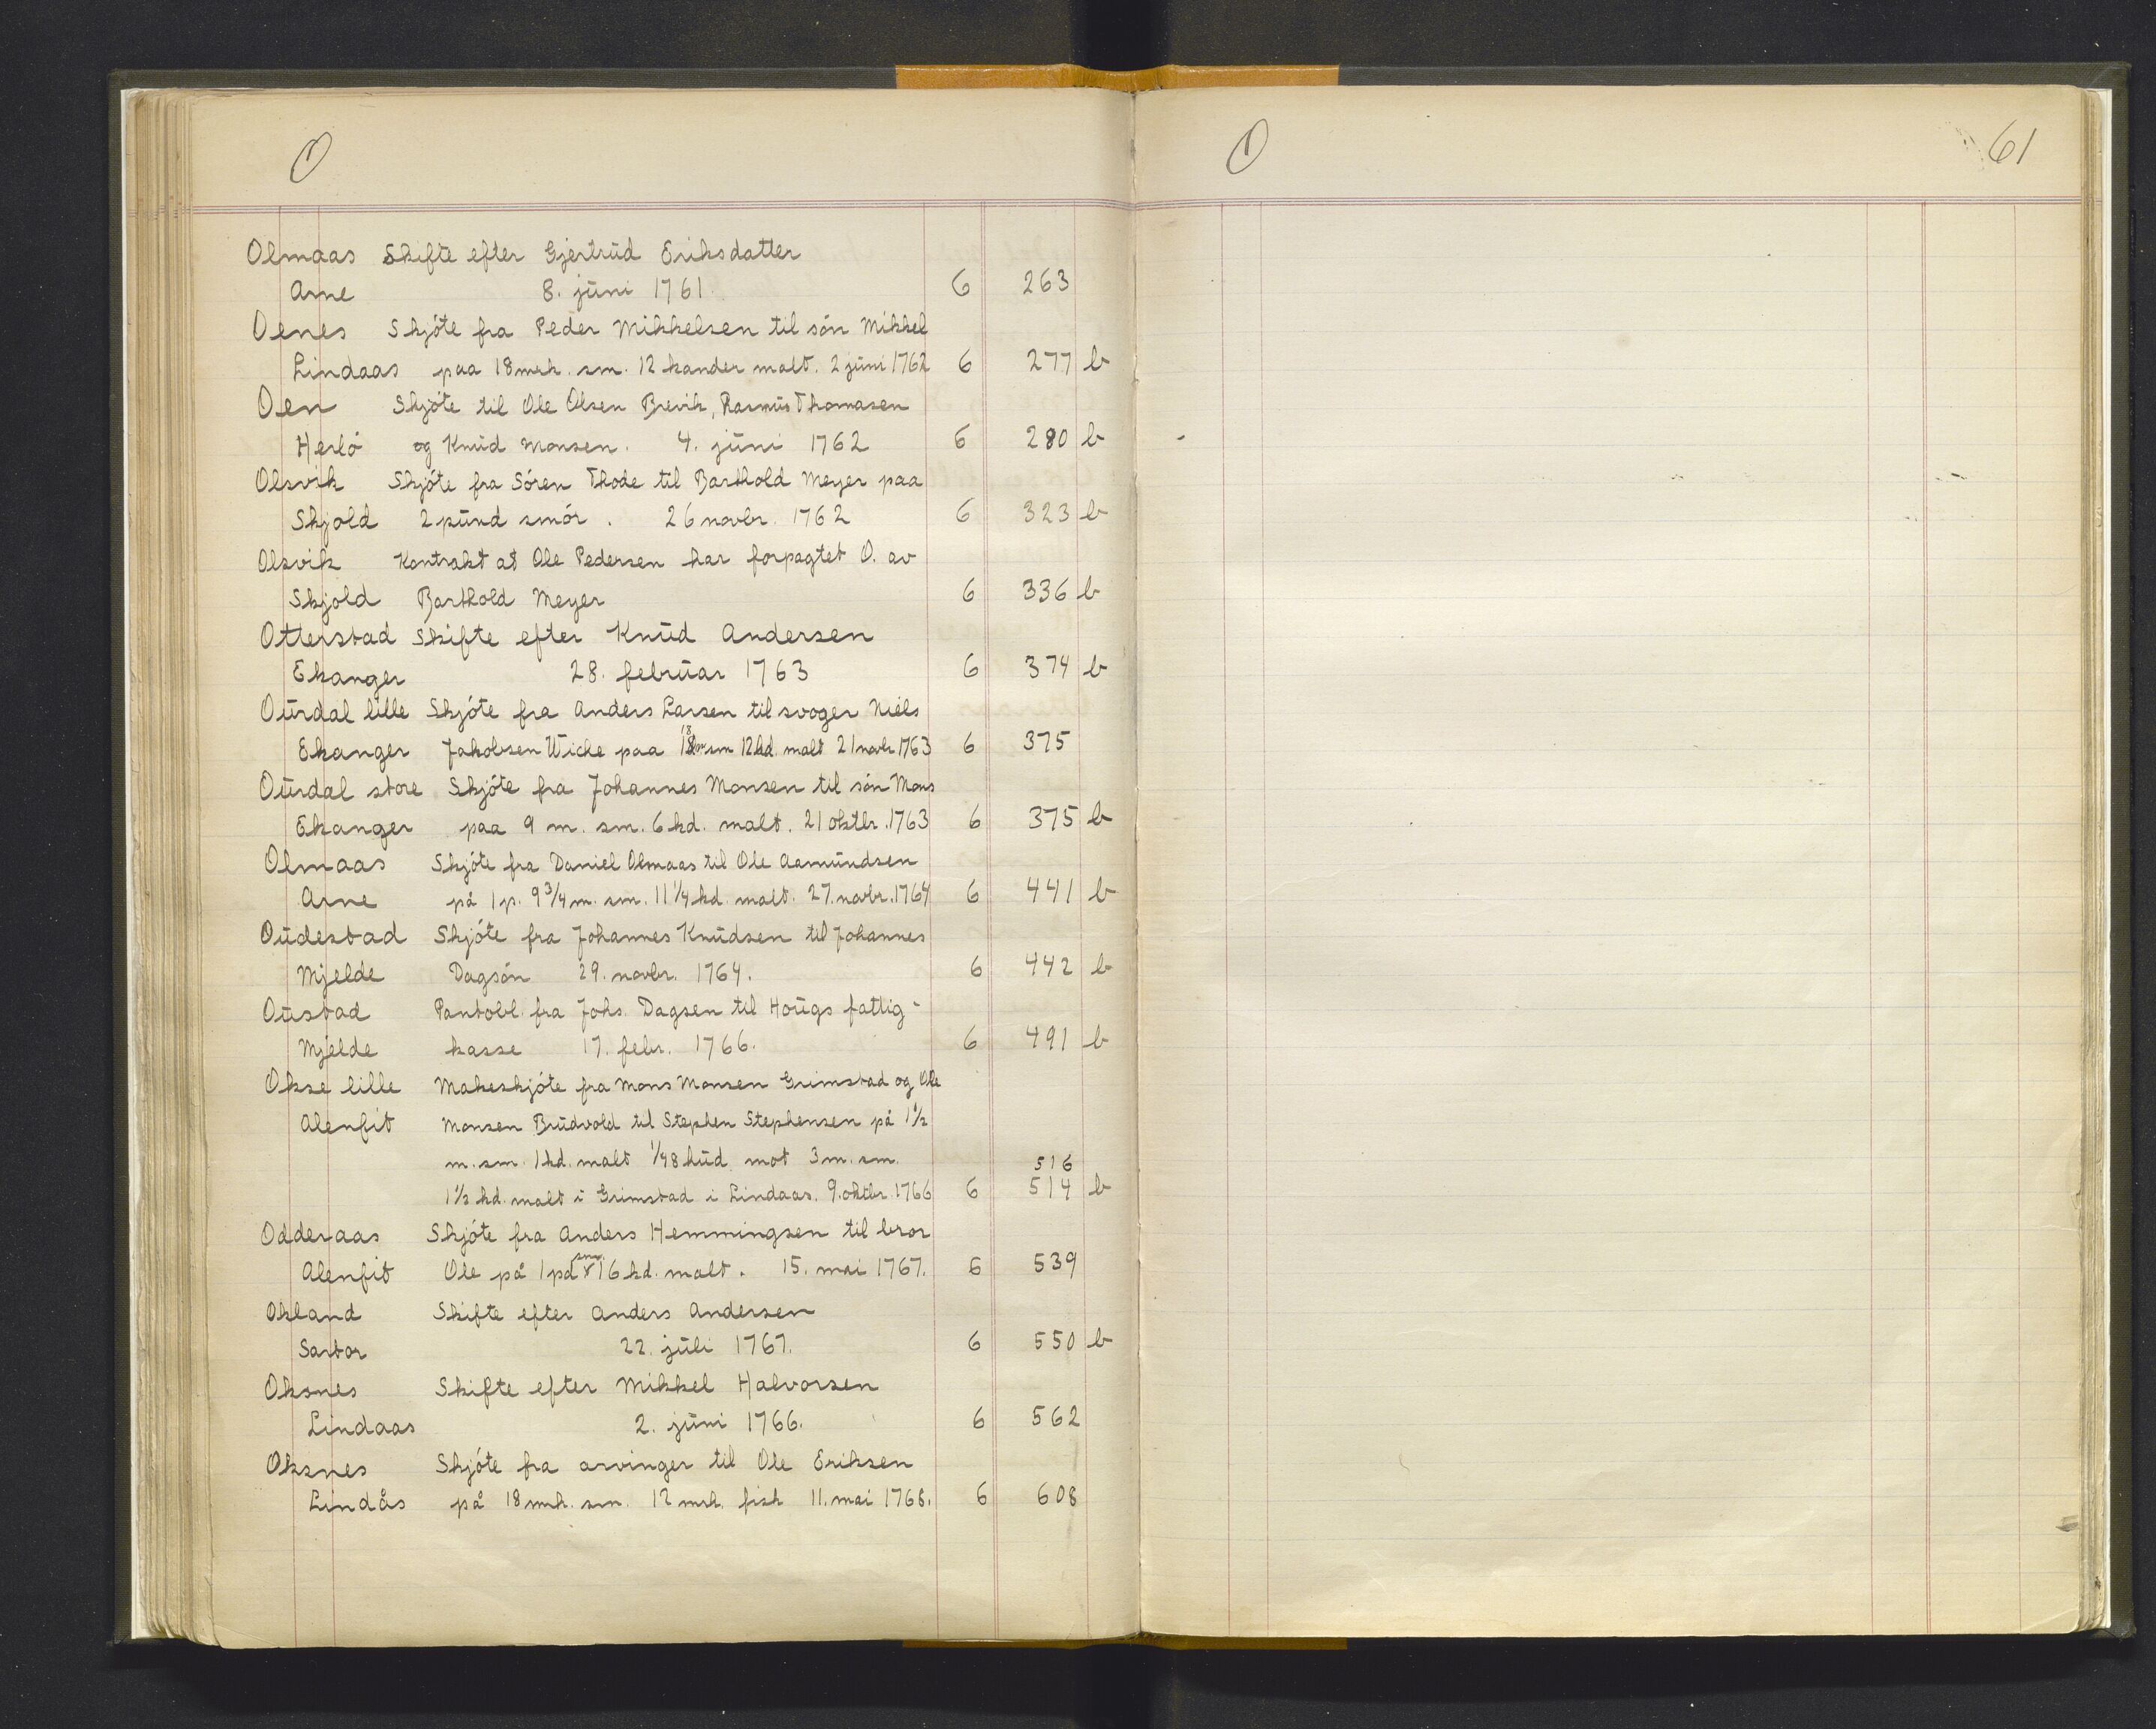 O
Olmaas Skifte efter Gjertrud Eriksdatter
Arne 8. juni 1761. 6 263
Oenes Skjöte fra Peder Mikkelsen til sön Mikkel
Lindaas paa 18 mrk. sm. 12 kander malt. 2 juni 1762 6 277 b
Oen Skjöte til Ole Olsen Brevik, Rasmus Thomasen
Herlö og Knud Monsen. 4. juni 1762 6 280 b
Olsvik Skjöte fra Sören Thode til Barthold Meyer paa
Skjold 2 pund smör. 26 novbr. 1762 6 323 b
Olsvik Kontrakt at Ole Pedersen har forpagtet O. av
Skjold Barthold Meyer 6 336 b
Otterstad Skifte efter Knud Andersen
Ekanger 28. februar 1763 6 374 b
Ourdal lille Skjöte fra Anders Larsen til svoger Niels
Ekanger Jakobsen Wicke paa 18 sm 12 kd. malt 21 novbr 1763 6 375
Ourdal store Skjöte fra Johannes Monsen til sön Mons
Ekanger paa 9 m. sm. 6 kd. malt. 21 oktbr. 1763 6 375 b
Olmaas Skjöte fra Daniel Olmaas til Ole Aamundsen
Arne på 1 p. 9 3/4 m. sm. 11 1/4 kd. malt. 27. novbr. 1764 6 441 b
Oudestad Skjöte fra Johannes Knudsen til Johannes
Mjelde Dagsön 29. novbr. 1764. 6 442 b
Oustad Pantobl. fra Johs. Dagsen til Hougs fattig-
Mjelde kasse 17. febr. 1766. 6 491 b
Okse lille Makeskjöte fra Mons Monsen Grimstad og Ole
Alenfit Monsen Brudvold til Stephen Stephensen på 1 1/2
m. sm. 1 kd. malt 1/48 hud mot 3 m. sm. 516
1 1/2 kd. malt i Grimstad i Lindaas. 9. oktbr. 1766 6 514 b
Odderaas Skjöte fra Anders Hemmingsen til bror
Alenfit Ole på 1 pd sm. 16 kd. malt. 15. mai 1767. 6 539
Okland Skifte efter Anders Andersen
Sartor 22. juli 1767. 6 550 b
Oksnes Skifte efter Mikkel Halvorsen
Lindaas 2. juni 1766. 6 562
Oksnes Skjöte fra arvinger til Ole Eriksen
Lindås på 18 mrk. sm. 12 mrk. fisk 11. mai 1768. 6 608
O 61